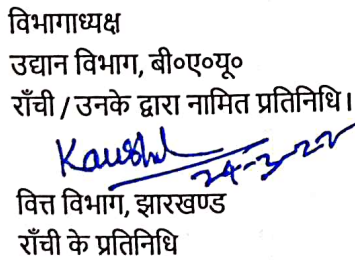 विभागाध्यक्ष
उद्यान विभाग, बी०ए०यू०
राँची / उनके द्वारा नामित प्रतिनिधि।
Kaushal
24-3-22
वित्त विभाग, झारखण्ड
राँची के प्रतिनिधि